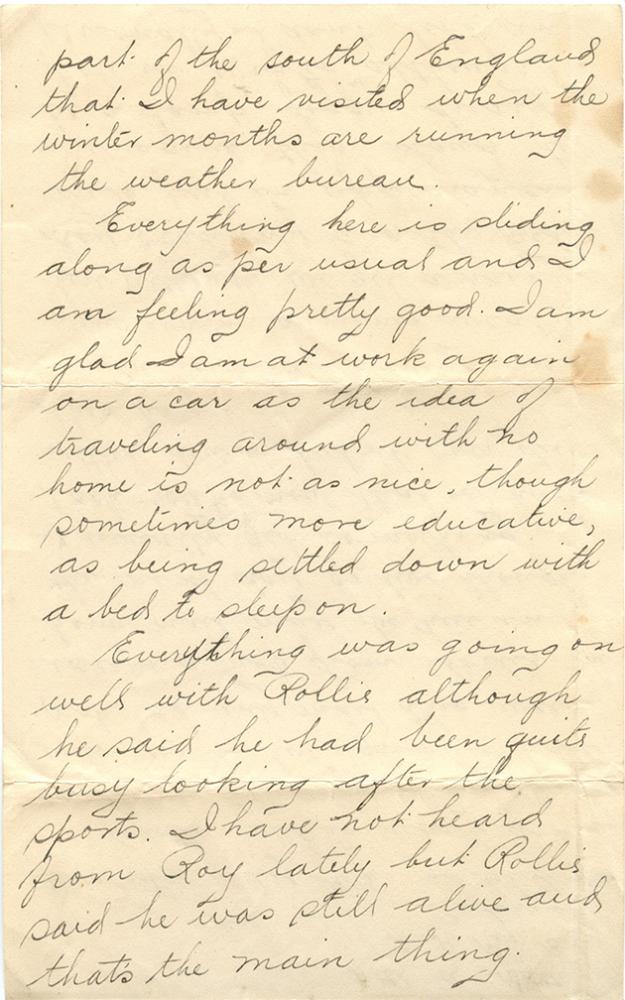 part of the south of England
that I have visited when the
winter months are running
the weather bureau.
Everything here is sliding
along as per usual and I
am feeling pretty good. I am
glad I am at work again
on a car as the idea of
traveling around with no
home is not as nice, though
sometimes more educative,
as being settled down with
a bed to sleep on.
Everything was going on
well with Rollie although
he said he had been quite
busy looking after the
sports. I have not heard
from Roy lately but Rollie
said he was still alive and
that's the main thing.